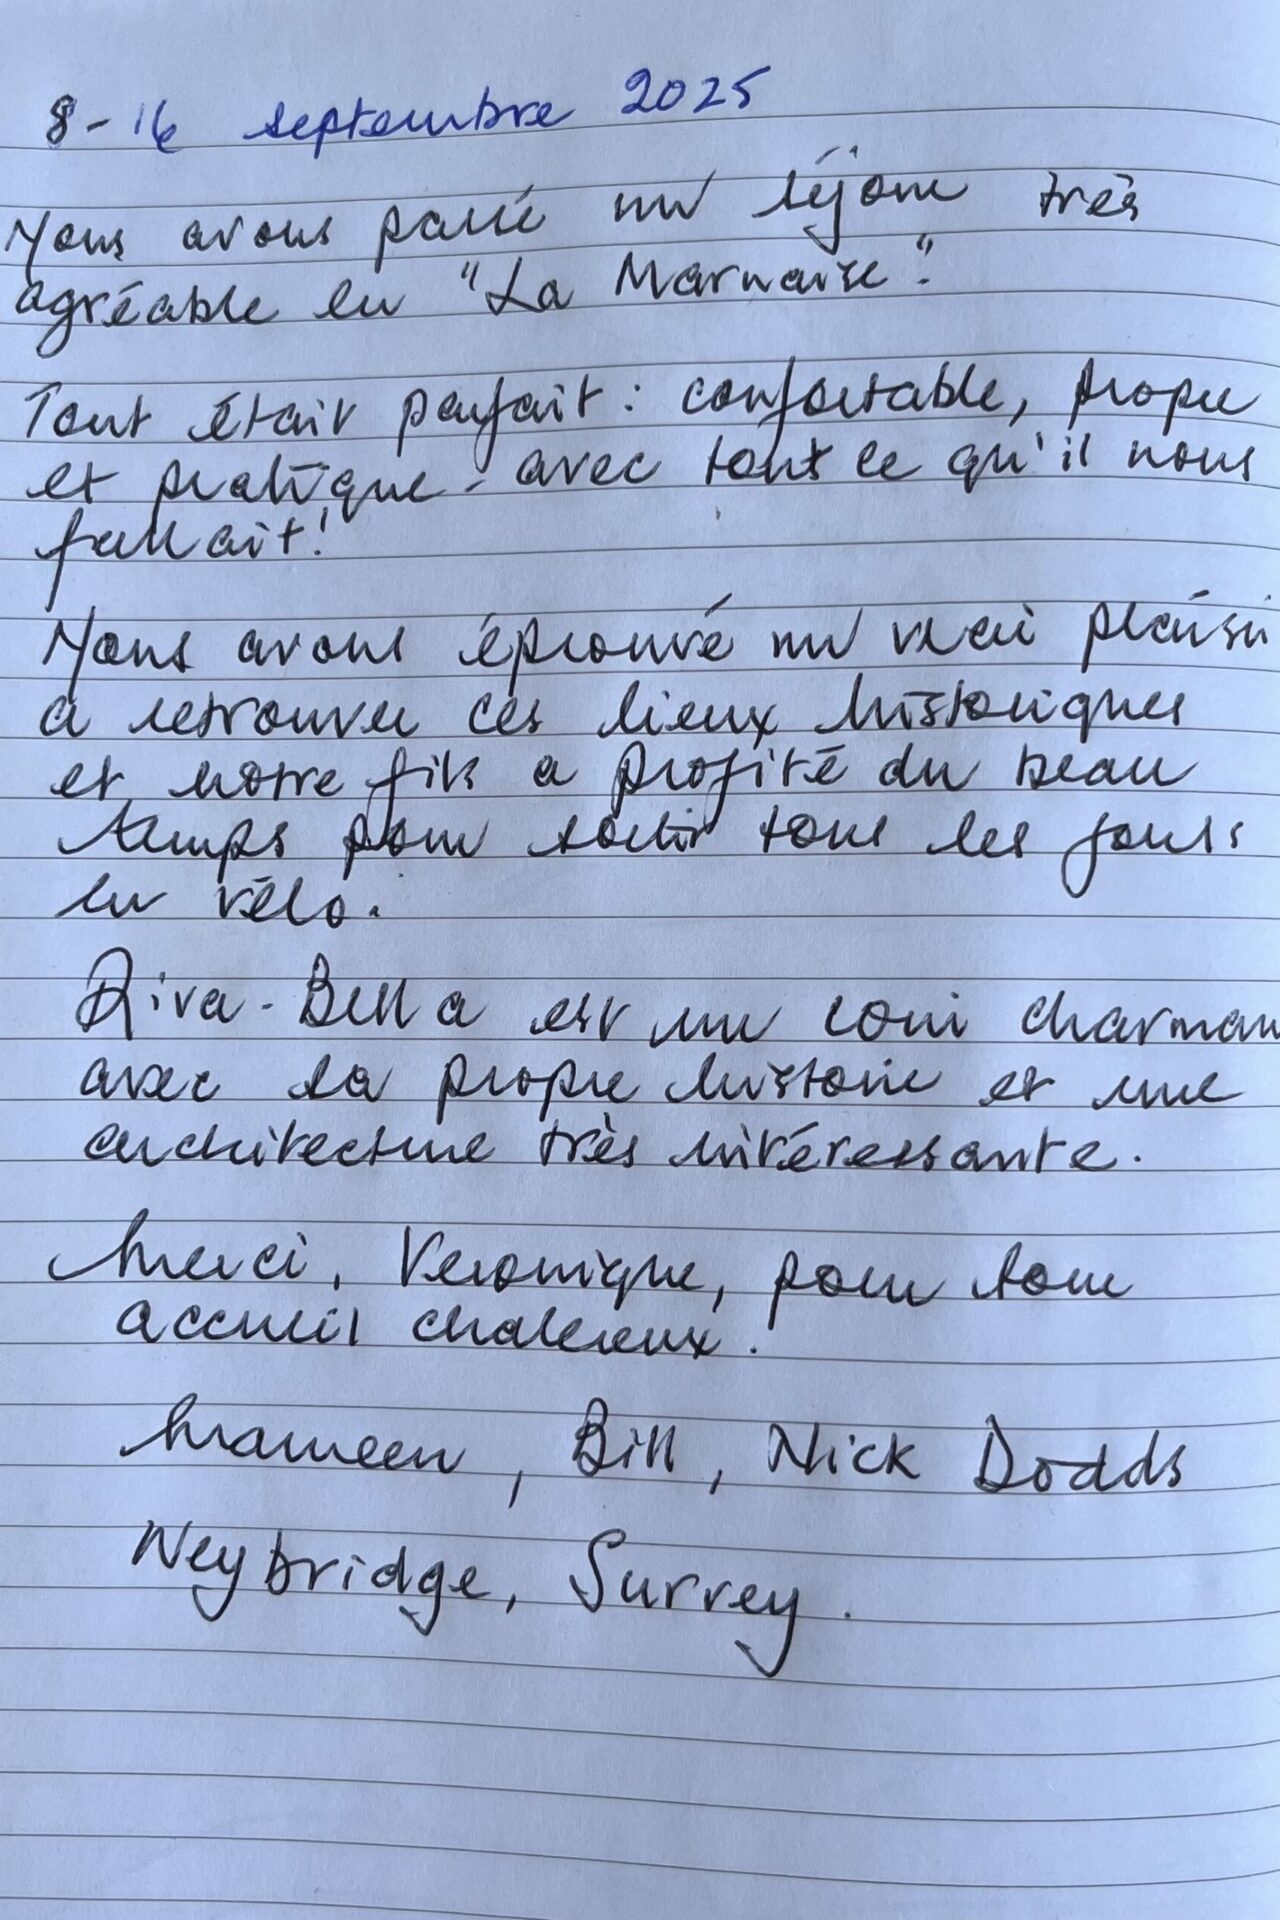 8-16 septembre 2025
Nous avons passé un séjour très
agréable en "La Marnaise".
Tout était parfait : confortable, propre
et pratique - avec tout ce qu'il nous
fallait!
Nous avons éprouvé un vrai plaisir
a retrouver ces lieux historiques
et notre fils a profité du beau
temps pour sortir tous les jours
en vélo.
Riva-Bella est un coin charman
avec sa propre histoire et une
architecture très intéressante.
Merci, Veronique, pour ton
accueil chalereux.
Maureen, Bill, Nick Dodds
Weybridge, Surrey.